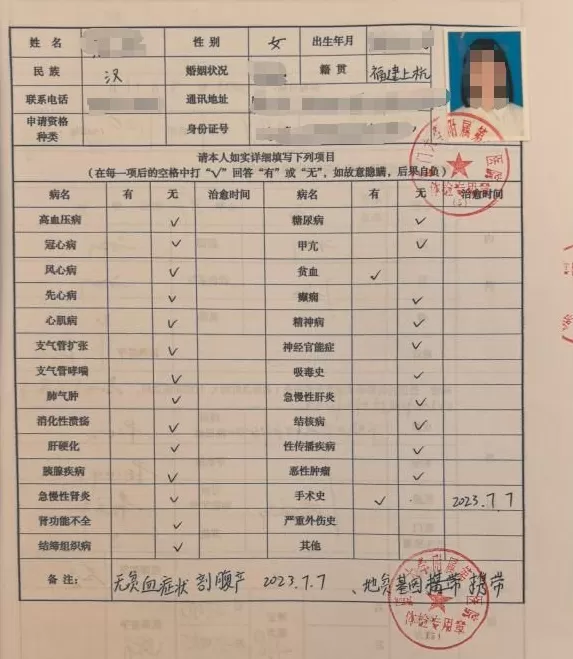 姓名 性别 女 出生年月
民族 汉 婚姻状况 籍贯 福建上杭
联系电话 通讯地址
申请资格种类 身份证号
请本人如实详细填写下列项目
(在每一项后的空格中打“√”回答“有”或“无”,如故意隐瞒,后果自负)
病名 有 无 治愈时间 病名 有 无 治愈时间
高血压病 √ 糖尿病 √
冠心病 √ 甲亢 √
风心病 √ 贫血 √
先心病 √ 癫痫 √
心肌病 √ 精神病 √
支气管扩张 √ 神经官能症 √
支气管哮喘 √ 吸毒史 √
肺气肿 √ 急慢性肝炎 √
消化性溃疡 √ 结核病 √
肝硬化 √ 性传播疾病 √
胰腺疾病 √ 恶性肿瘤 √
急慢性肾炎 √ 手术史 √ 2023.7.7
肾功能不全 √ 严重外伤史
结缔组织病 √ 其他
备注: 无贫血症状 剖腹产 2023.7.7 、地贫基因携带 携带